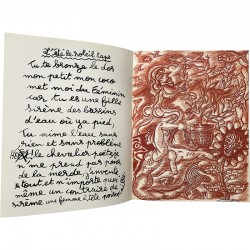 L'été le soleil tape
Tu te bronze le dos
mon petit mon coco
met moi du féminin
car tu es une fille
sirène des bassins
d'eau où ya pied,
Tu aime l'eau sans
rien et sans problème
le chevalier poëtype
ne me prend par pour
de la merde, j'invente
tout et n'importe quoi
même un contraire de
sirème une femme à tête poisson